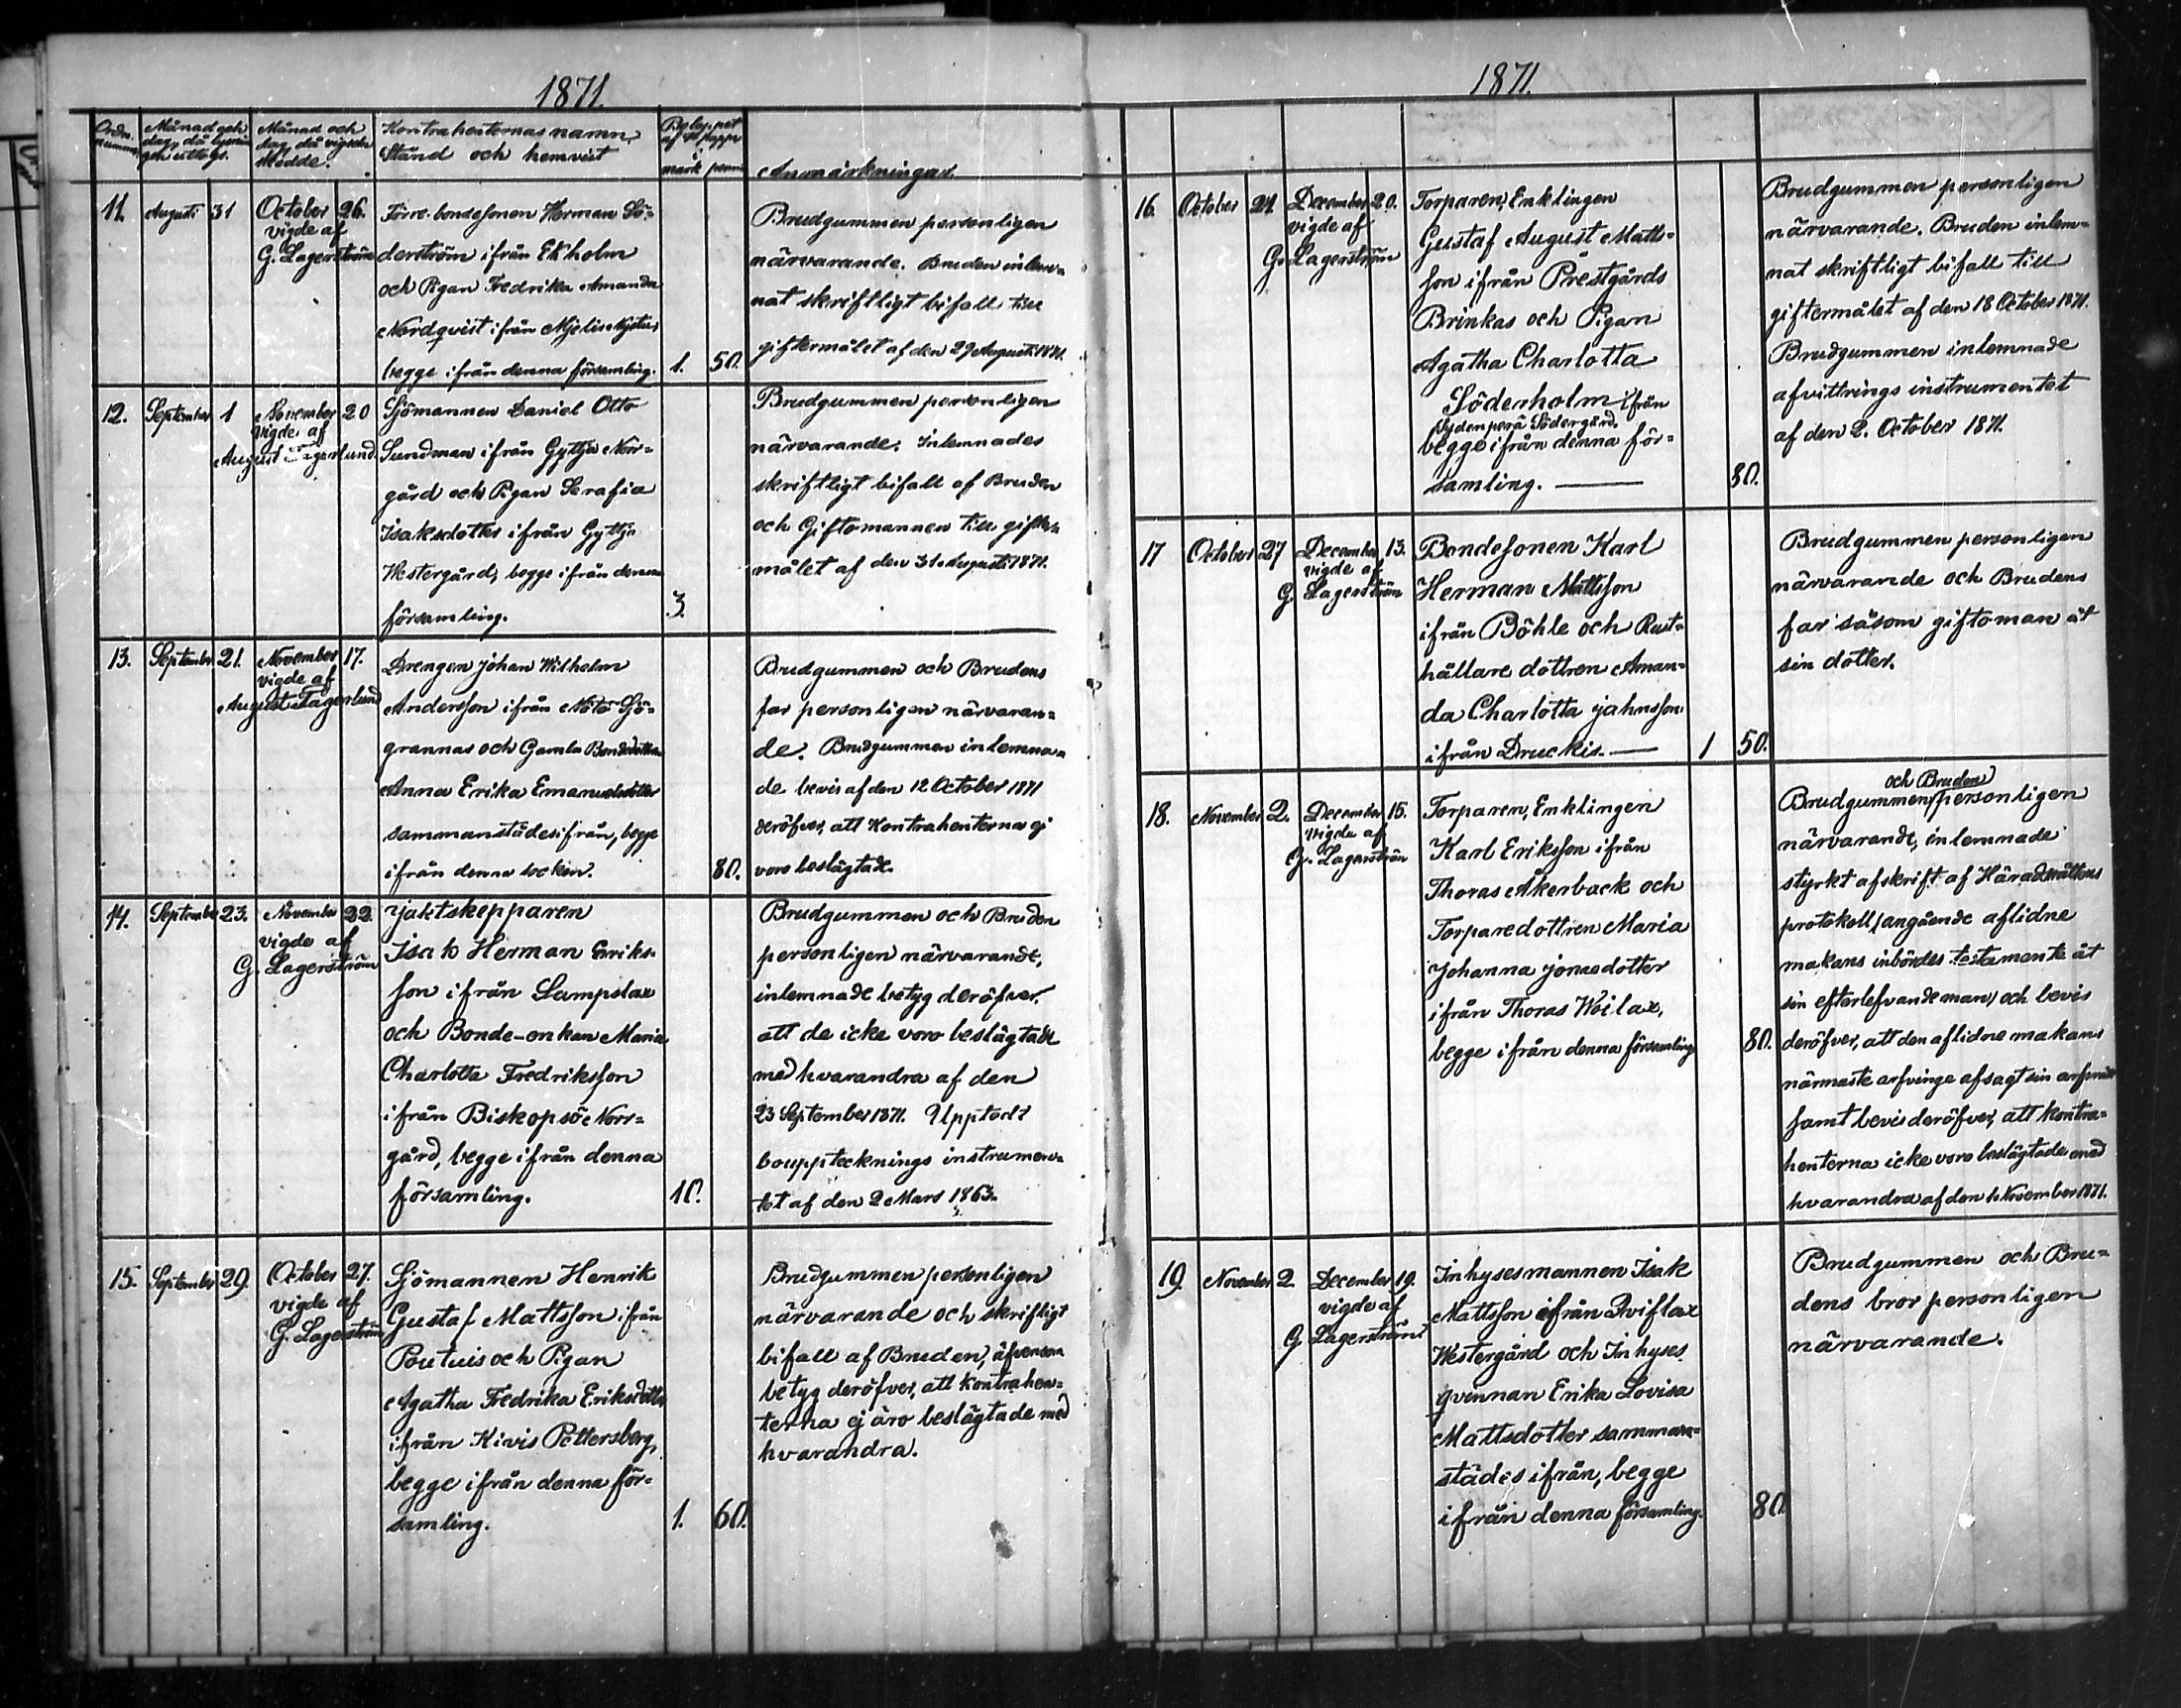 1871.
Ordn.
numm.
Månad och
dag, då lysning
och uttogs.
Månad och
dag, då vigseln
skedde.
Kontrahenternas namn,
Stånd och hemvist
Beloppet
mark penni
Anmärkningar.
11. Augusti 31
October 26.
vigde af
G. Lagerström
Förre bondesonen Herman Sö-
derström ifrån Ekholm
och Pigan Fredrika Amanda
Nordqvist ifrån
begge ifrån denna församling. 1. 50.
Brudgummen personligen
närvarande. Bruden inlem-
nat skriftligt bifall till
giftermålet af den 29 Augusti 1871.
12. September 1
November 20
vigde af
August Fagerlund.
Sjömannen Daniel Otto
Sundman ifrån Gyttja Norr-
gård och Pigan Serafia
Isaksdotter ifrån Gyttja
Westergård, begge ifrån denna
församling. 3.
Brudgummen personligen
närvarande. Inlemnades
skriftligt bifall af Bruden
och Giftomannen till gifter-
målet af den 31. Augusti 1871.
13. September 21.
November 17.
vigde af
August Fagerlund
Drengen Johan Wilhelm
Andersson ifrån Nötö Sjö-
grannas och Gamla Bondedottren
Anna Erika Emanuelsdotter
sammanstädesifrån, begge
ifrån denna socken. 80.
Brudgummen och Brudens
far personligen närvaran-
de. Brudgummen inlemna-
de bevis af den 12 October 1871
deröfver, att Kontrahenterna ej
voro beslägtade.
14. September 23.
November 22.
vigde af
G. Lagerström
Jaktskepparen
Isak Herman Eriks-
son ifrån Lampslax
och Bonde-enkan Maria
Charlotta Fredriksson
ifrån Biskopsö Norr-
gård, begge ifrån denna
församling. 10.
Brudgummen och Bruden
personligen närvarande,
inlemnade betyg deröfver,
att de icke voro beslägtade
med hvarandra af den
23 September 1871. Upptedt
bouppteckningsinstrumen-
tet af den 2 Mars 1863.
15. September 29.
October 27.
vigde af
G. Lagerström
Sjömannen Henrik
Gustaf Mattsson ifrån
Poutuis och Pigan
Agatha Fredrika Eriksdotter
ifrån Kivis Pettersberg,
begge ifrån denna för-
samling. 1. 60.
Brudgummen personligen
närvarande och skrifligt
bifall af Bruden, äfvensom
betyg deröfver, att Kontrahen-
terna ej äro beslägtade med
hvarandra.
1871.
16. October 21
December 20.
vigde af
G. Lagerström
Torparen, Enklingen
Gustaf August Matts-
son ifrån Prestgårds
Brinkas och Pigan
Agatha Charlotta
Söderholm ifrån
Sydenperä Södergård,
begge ifrån denna för-
samling. 80.
Brudgummen personligen
närvarande. Bruden inlem-
nat skriftligt bifall till
giftermålet af den 18 October 1871.
Brudgummen inlemnade
afvittrings instrumentet
af den 2. October 1871.
17 October 27
December 13.
vigde af
G. Lagerström
Bondesonen Karl
Herman Mattsson
ifrån Böhle och Rust-
hållare dottren Aman-
da Charlotta Jahnsson
ifrån Druckis. 1 50.
Brudgummen personligen
närvarande och Brudens
far såsom giftoman åt
sin dotter.
18. November 2.
December 15.
vigde af
G. Lagerström
Torparen, Enklingen
Karl Eriksson ifrån
Thoras Åkerback och
Torparedottren Maria
Johanna Jonasdotter
ifrån Thoras Woilax,
begge ifrån denna församling 80.
och Bruden
Brudgummen personligen
närvarande, inlemnade
styrkt afskrift af Häradsrättens
protokoll, angående aflidne
makans inbördes testamente åt
sin efterlefvande man, och bevis
deröfver, att den aflidne makans
närmaste arfvinge afsagt sin arfsrätt
samt bevis deröfver, att kontra-
henterna icke voro beslägtade med
hvarandra af den 1. November 1871.
19. November 2.
December 19.
vigde af
G. Lagerström
Inhysesmannen Isak
Mattsson ifrån Qviflax
Westergård och Inhyses
qvinnan Erika Lovisa
Mattsdotter samman-
städes ifrån, begge
ifrån denna församling. 80
Brudgummen och Bru-
dens bror personligen
närvarande.